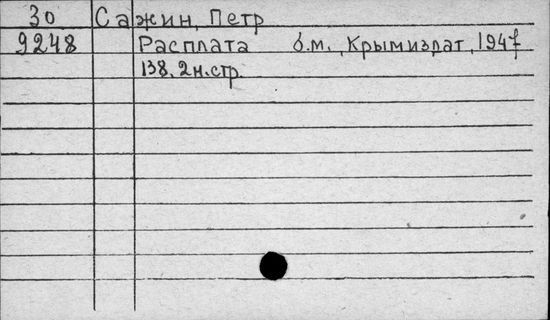 30 Сажин, Петр
9248 Расплата б.м., Крымиздат, 1947
138, 2н.стр.